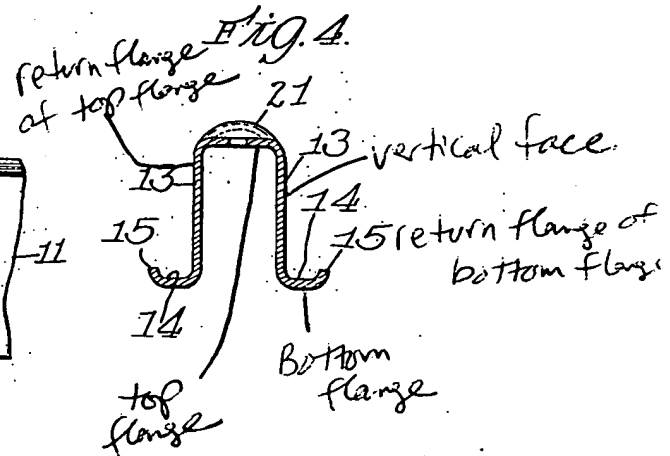 Fig. 4.
return flange
of top flange
21
13
13
vertical face.
14
15
15 return flange of
bottom flang
11
14
Bottom
flange
top
flange